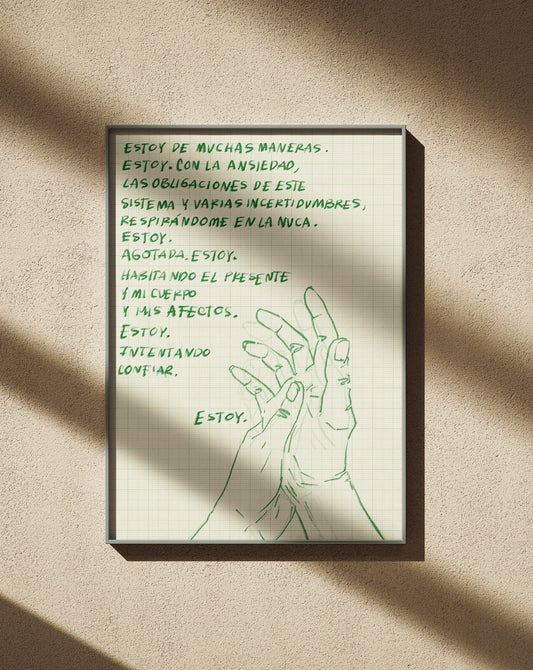 ESTOY DE MUCHAS MANERAS.
ESTOY. CON LA ANSIEDAD,
LAS OBLIGACIONES DE ESTE
SISTEMA Y VARIAS INCERTIDUMBRES,
RESPIRÁNDOME EN LA NUCA.
ESTOY.
AGOTADA. ESTOY.
HABITANDO EL PRESENTE
Y MI CUERPO
Y MIS AFECTOS.
ESTOY.
INTENTANDO
CONFIAR.
ESTOY.